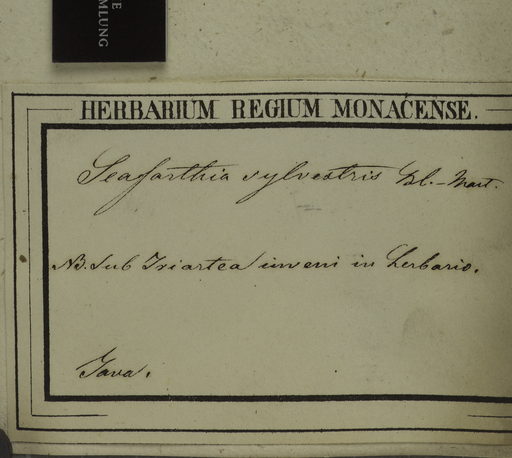 E
MLUNG
HERBARIUM REGIUM MONACENSE.
Seaforthia sylvestris Bl. - Mart.
NB. sub Iriartea inveni in herbario.
Java.